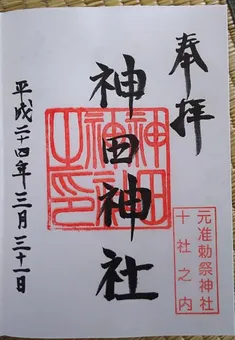 奉拝
元准勅祭神社
十社之内
神田神社
神田神社之印
平成二十四年三月三十一日